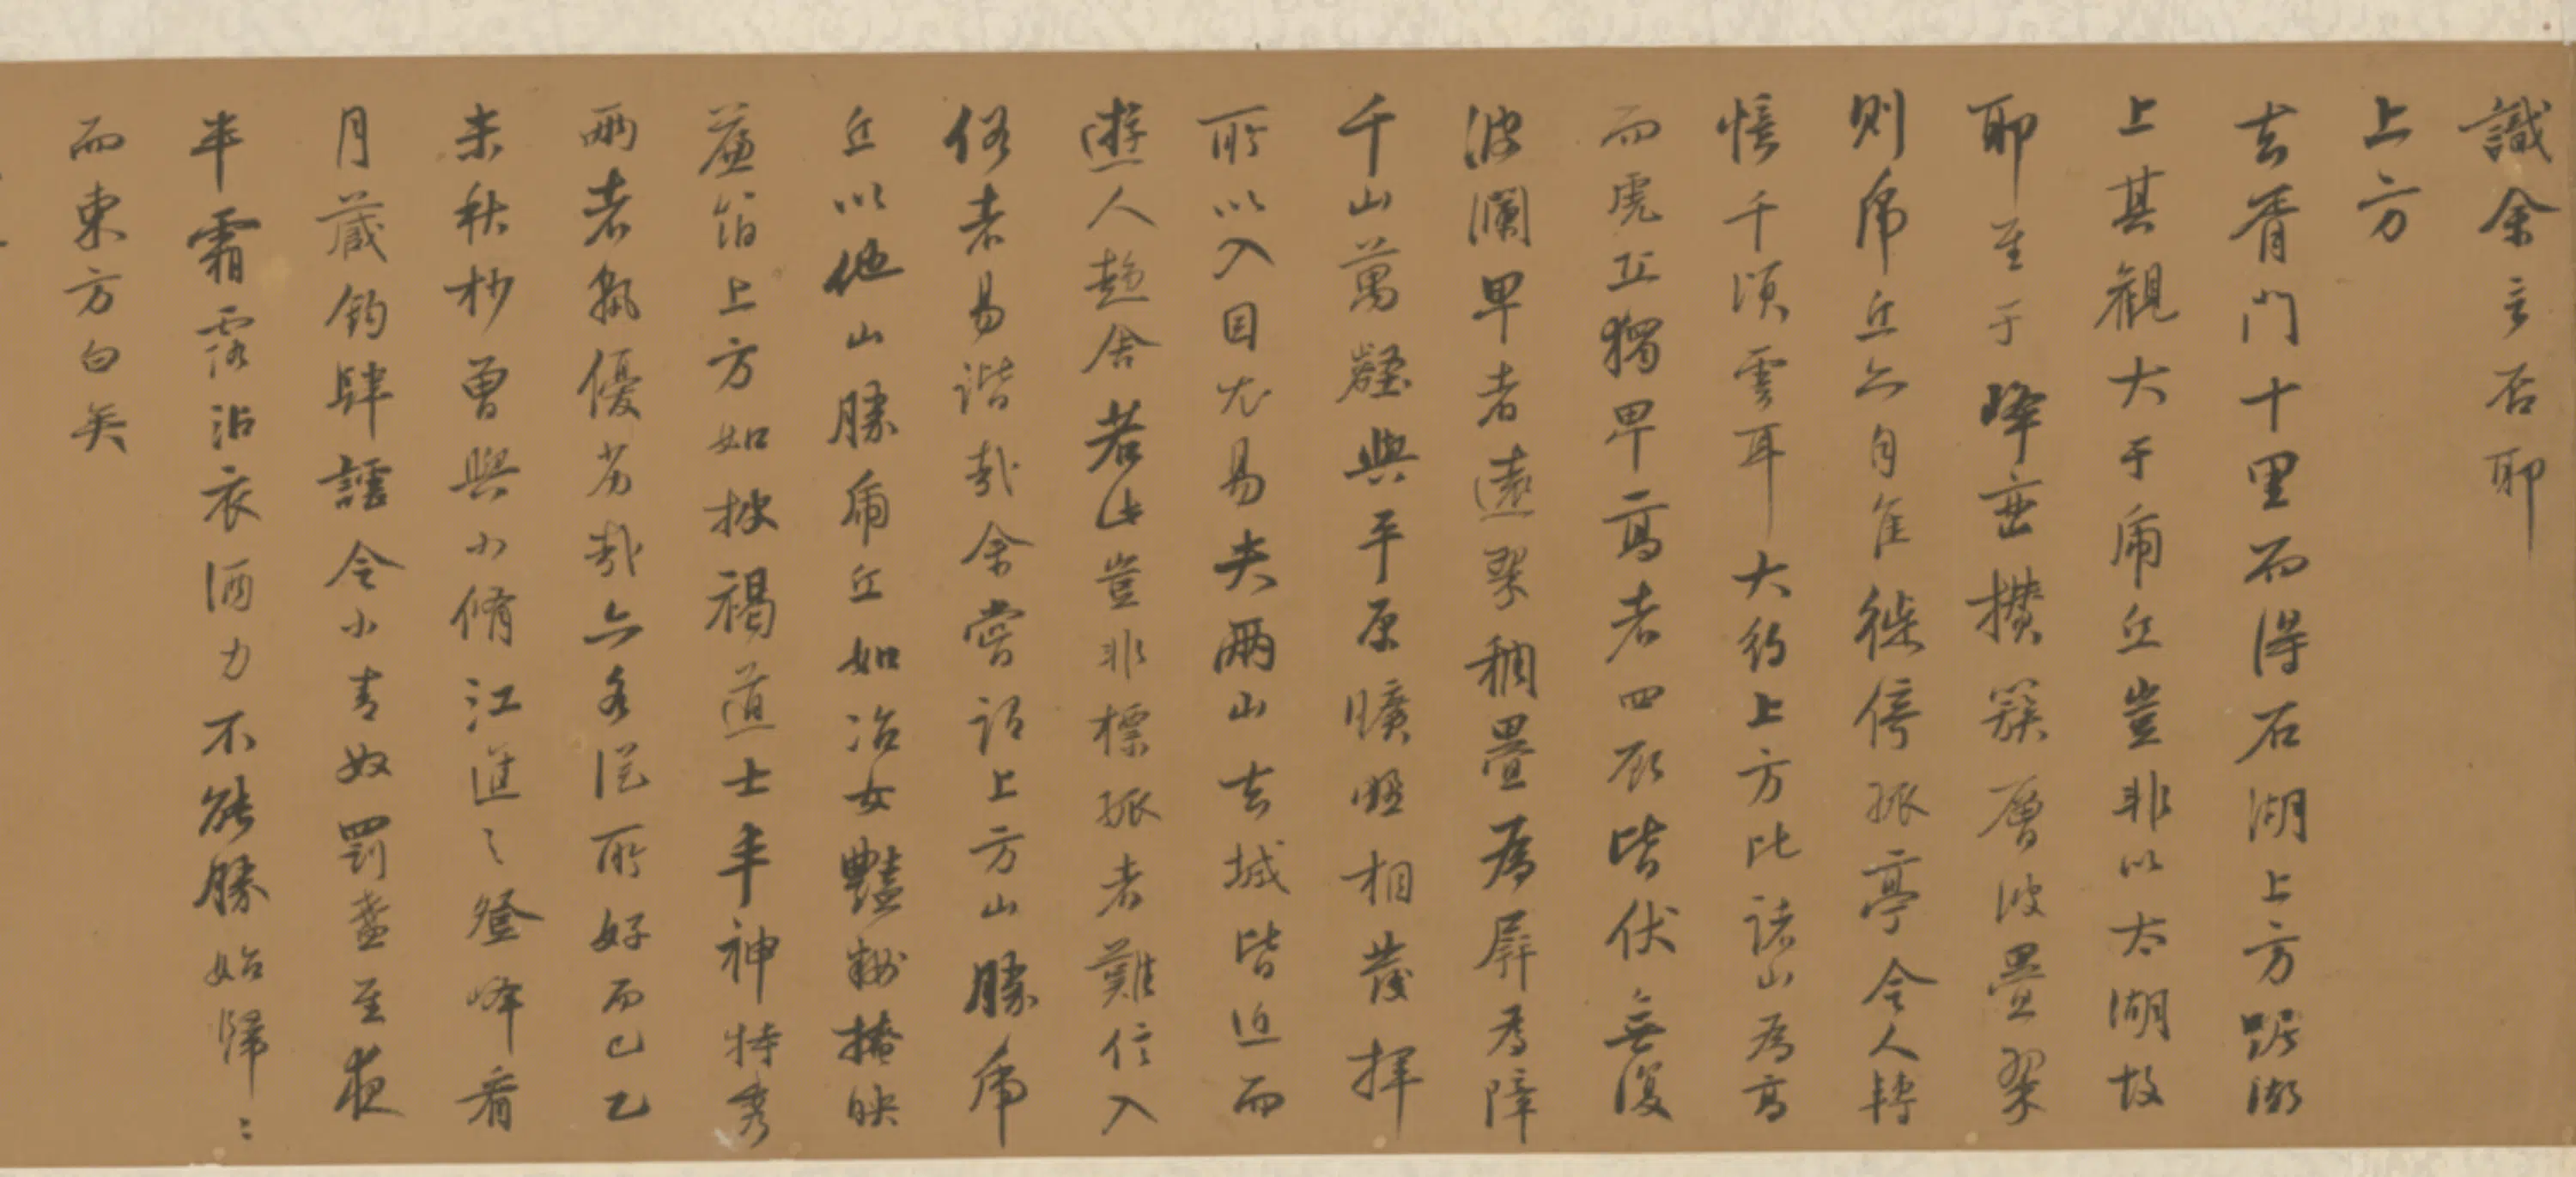 識余言否耶
上方
去胥門十里而得石湖上方踞湖
上其觀大于虎丘豈非以太湖故
耶至于峰巒攢簇層波疊翠
則虎丘亦自佳徙倚孤亭令人轉
憶千頃雲耳大約上方比諸山為高
而虎丘獨卑高者四顧皆伏無復
波瀾卑者遠翠稠疊為屏為障
千山萬壑與平原曠野相發揮
所以入目尤易夫兩山去城皆近而
遊人趨舍若此豈非標孤者難信入
俗者易諧哉余嘗謂上方山勝虎
丘以他山勝虎丘如冶女艷粧掩映
簾箔上方如披褐道士丰神特秀
兩者孰優劣哉亦各從所好而已乙
未秋杪曾與小脩江進之登峰看
月藏鉤肆謔令小青奴罰盞至夜
半霜露沾衣酒力不能勝始歸〻
而東方白矣